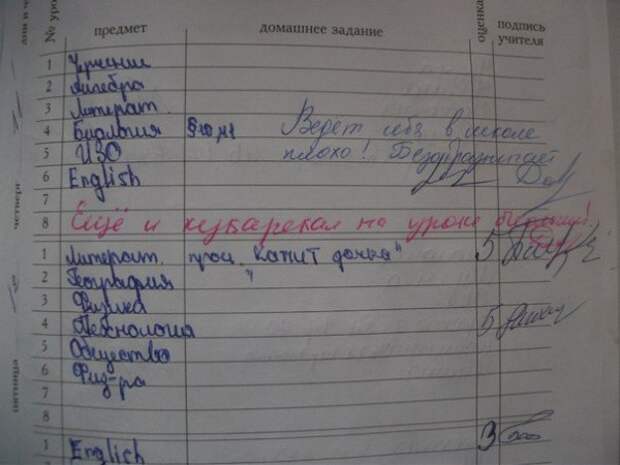 дни и ч
№ уро
предмет
домашнее задание
оценка
подпись учителя
четверг
1 Черчение
2 Алгебра
3 Литерат.
4 Биология §10, Ведет себя в школе
5 ИЗО плохо! Безобразничает
6 English
7
8 Ещё и кукарекал на уроке
пятница
1 Литерат. проч. "Капит дочка" 5
2 География "
3 Физика
4 Технология 5
5 Общество
6 Физ-ра
7
8
3
1 English